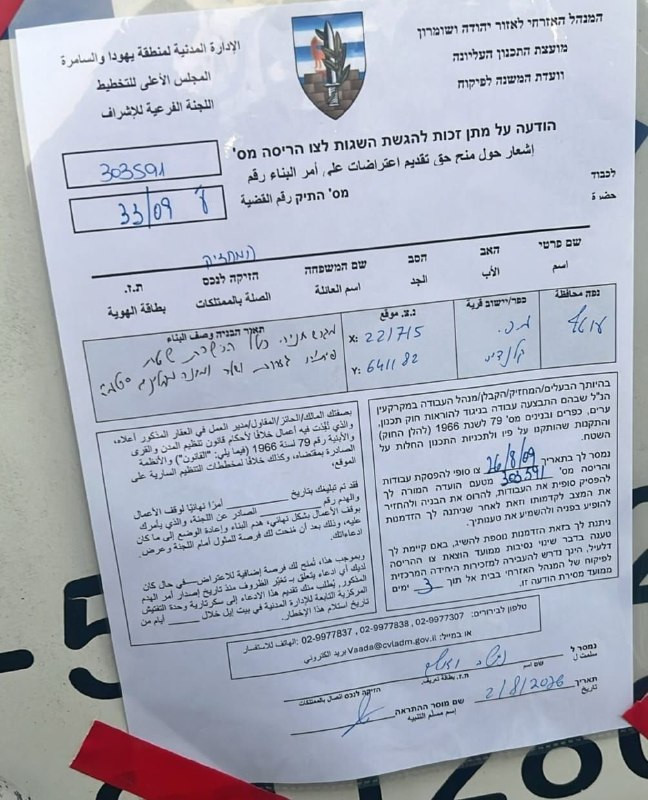 המנהל האזרחי לאזור יהודה ושומרון
מועצת התכנון העליונה
וועדת המשנה לפיקוח
الإدارة المدنية لمنطقة يهودا والسامرة
المجلس الأعلى للتخطيط
اللجنة الفرعية للإشراف
הודעה על מתן זכות להגשת השגות לצו הריסה מס'
إشعار حول منح حق تقديم اعتراضات على أمر البناء رقم
303591
מס' התיק رقم القضية
33/09
לכבוד
حضرة
המחזיק
שם פרטי האב הסב שם המשפחה הזיקה לנכס ת.ז.
اسم الأب الجد اسم العائلة الصلة بالممتلكات بطاقة الهوية
נפה محافظة כפר/יישוב قرية נ.צ. موقع תאור הבניה وصف البناء
קלנדיה
X: 221715
Y: 641182
בהיותך הבעלים/המחזיק/הקבלן/מנהל העבודה במקרקעין
הנ"ל שבהם התבצעה עבודה בניגוד להוראות חוק תכנון,
ערים, כפרים ובנינים מס' 79 לשנת 1966 (להלן החוק)
והתקנות שהותקנו על פיו ולתכניות התכנון החלות על
השטח.
נמסר לך בתאריך 26/8/09 צו סופי להפסקת עבודות
והריסה מס' 303591 מטעם הועדה המורה לך
להפסיק סופית את העבודות, להרוס את הבניה ולהחזיר
את המצב לקדמותו וזאת לאחר שניתנה לך הזדמנות
להופיע בפניה ולהשמיע את טענותיך.
ניתנת לך בזאת הזדמנות נוספת להשיג, באם קיימת לך
טענה בדבר שינוי נסיבות ממועד הוצאת צו ההריסה
דלעיל. הינך נדרש להעבירה למזכירות היחידה המרכזית
לפיקוח של המנהל האזרחי בבית אל תוך 3 ימים
ממועד מסירת הודעה זו.
بصفتك المالك/الحائز/المقاول/مدير العمل في العقار المذكور أعلاه،
والذي نُفّذت فيه أعمال خلافًا لأحكام قانون تنظيم المدن والقرى
والأبنية رقم 79 لسنة 1966 (فيما يلي: "القانون") والأنظمة
الصادرة بمقتضاه، وكذلك خلافًا لمخططات التنظيم السارية على
الموقع،
فقد تم تبليغك بتاريخ أمرًا نهائيًا لوقف الأعمال
والهدم رقم الصادر عن اللجنة، والذي يأمرك
بوقف الأعمال بشكل نهائي، هدم البناء وإعادة الوضع إلى ما كان
عليه، وذلك بعد أن مُنحت لك فرصة للمثول أمام اللجنة وعرض
ادعاءاتك.
بموجب هذا، تُمنح لك فرصة إضافية للاعتراض في حال كان
لديك أي ادعاء يتعلق بـ تغيّر الظروف منذ تاريخ إصدار أمر الهدم
المذكور. يُطلب منك تقديم هذا الادعاء إلى سكرتارية وحدة التفتيش
المركزية التابعة للإدارة المدنية في بيت إيل خلال أيام من
تاريخ استلام هذا الإخطار.
טלפון לבירורים: 02-9977307, 02-9977838, 02-9977837 :الهاتف للاستفسار
או במייל: Vaada@cvladm.gov.il بريد الكتروني
נמסר ל
سلمت ل
שם اسم ת.ז. بطاقة تعريف הזיקה לנכס اتصال بالممتلكات
תאריך 2/8/2026
تاريخ
שם מוסר ההתראה
إسم مسلم التنبيه